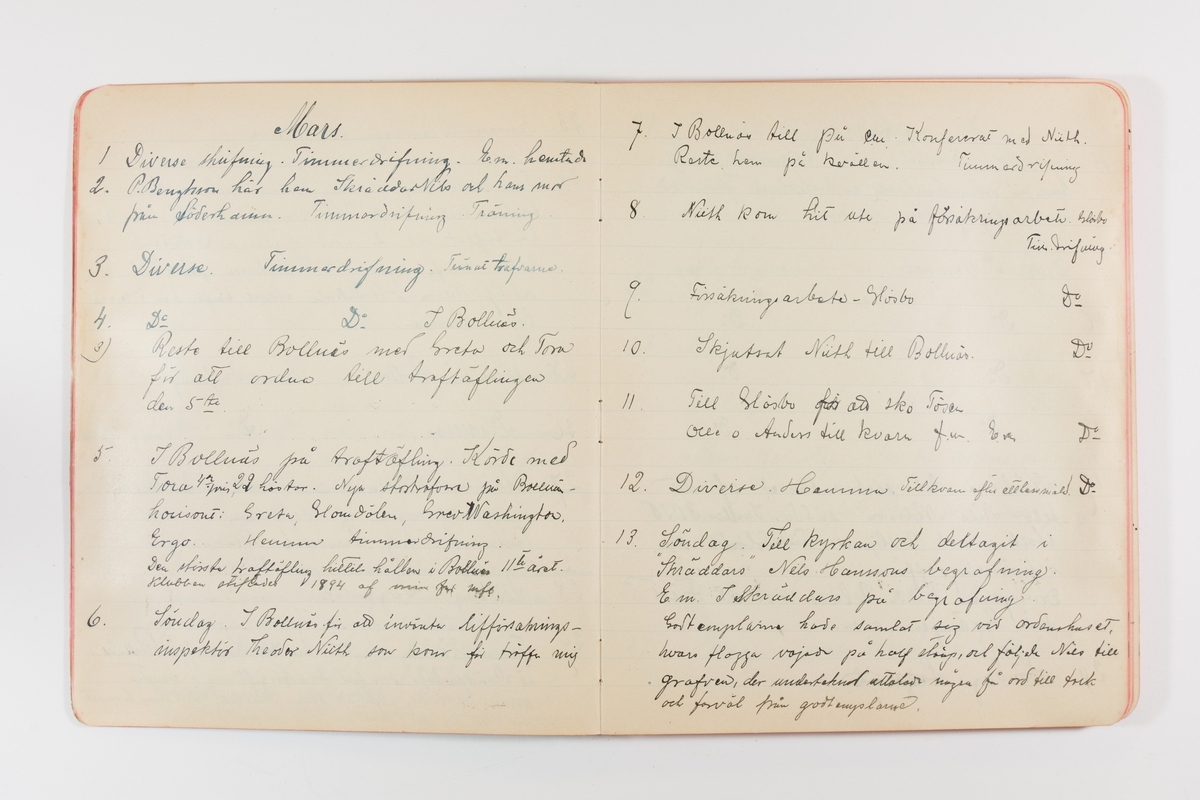 Mars.
1 Diverse skrifning. Timmerdrifning. Em. hemtade
2. P. Bengtsson här hem Skräddar Nils och hans mor
från Söderhamn. Timmerdrifning. Träning.
3. Diverse. Timmerdrifning. Tränat trafvarne.
4. Do Do I Bollnäs.
(3) Reste till Bollnäs med Greta och Tora
för att ordna till traftäflingen
den 5te
5. I Bollnäs på traftäfling. Körde med
Tora 4de pris, 22 hästar. Nya stortrafvare på Bollnäs-
horisont: Greta, Glomdölen, Grev Washington,
Ergo. Hemma timmerdrifning.
Den största traftäfling hittils hållen i Bollnäs 11te året.
Klubben stiftades 1894 af min
6. Söndag. I Bollnäs för att invänta lifförsäkrings-
inspektör Theodor Nieth som kom för träffa mig
7. I Bollnäs till på em. Konfererat med Nieth.
Reste hem på kvällen. Timmerdrifning
8 Nieth kom hit ute på försäkringsarbete. Glösbo
Tim.drifning.
9. Försäkringsarbete - Glösbo Do
10. Skjutsat Nieth till Bollnäs. Do
11 Till Glösbo för att sko Tösen
Olle o Anders till kvarn f.m. Em Do
12. Diverse. Hemma. Till kvarn efter Do
13. Söndag. Till kyrkan och deltagit i
Skräddars Nils Hanssons begrafning.
E m. I Skräddars på begrafning.
Godtemplarne hade samlat sig vid ordenshuset,
hvars flagga vajade på half stång, och följde Nils till
grafven, der underteknad uttalade några få ord till tack
och farväl från godtemplarne.